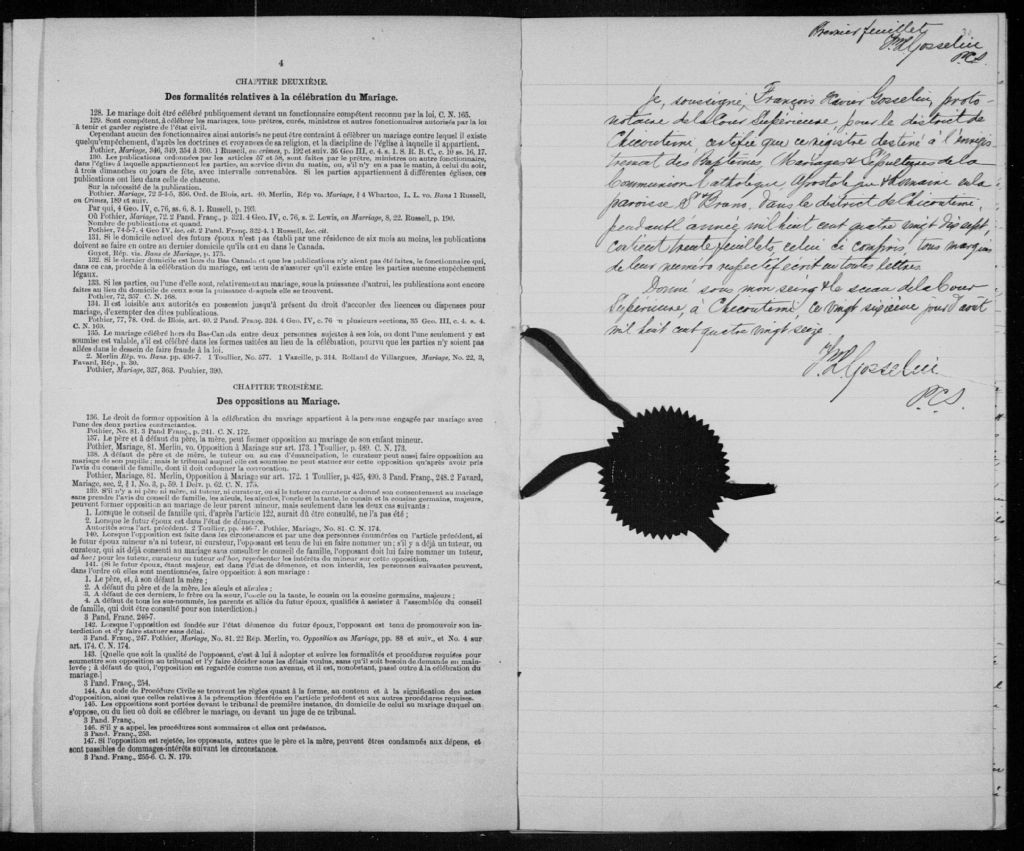 4
CHAPITRE DEUXIÈME.
Des formalités relatives à la célébration du Mariage.
128. Le mariage doit être célébré publiquement devant un fonctionnaire compétent reconnu par la loi, C. N. 165.
129. Sont compétent, à célébrer les mariages, tous prêtres, curés, ministres et autres fonctionnaires autorisés par la loi
à tenir et garder registre de l'état civil.
Cependant aucun des fonctionnaires ainsi autorisés ne peut être contraint à célébrer un mariage contre lequel il existe
quelqu'empêchement, d'après les doctrines et croyances de sa religion, et la discipline de l'église à laquelle il appartient.
Pothier, Mariage, 346, 349, 354 à 360. 1 Russell, on crimes, p. 192 et suiv. 36 Geo III, c. 4. s. 1. 8. R. B. C., c. 10 ss. 16, 17.
130. Les publications ordonnées par les articles 57 et 58, sont faites par le prêtre, ministres ou autre fonctionnaire,
dans l'église à laquelle appartiennent les parties, au service divin du matin, ou, s'il n'y en a pas le matin, à celui du soir,
à trois dimanches ou jours de fête, avec intervalle convenables. Si les parties appartiennent à différentes églises, ces
publications ont lieu dans celle de chacune.
Sur la nécessité de la publication.
Pothier, Mariage, 72 3-4-5, 356, Ord. de Blois, art. 40. Merlin, Rép vo. Mariage, § 4 Wharton, L. L. vo. Bans 1 Russell,
on Crimes, 189 et suiv.
Par qui, 4 Geo. IV, c. 76, ss. 6, 8. 1. Russell, p. 193.
Où Pothier, Mariage, 72. 2 Pand. Franç., p 321. 4 Geo. IV, c. 76, s. 2. Lewis, on Marriage, 8, 22. Russell, p. 190.
Nombre de publications et quand.
Pothier, 74-5-7. 4 Geo IV, loc. cit. 2 Pand. Franç. 322-4. 1 Russell, loc. cit.
131. Si le domicile actuel des futurs époux n'est pas établi par une résidence de six mois au moins, les publications
doivent se faire en outre au dernier domicile qu'ils ont eu dans le Canada.
Guyot, Rép. vis. Bans de Mariage, p. 175.
132. Si le dernier domicile est hors du Bas Canada et que les publications n'y aient pas été faites, le fonctionnaire qui,
dans ce cas, procède à la célébration du mariage, est tenu de s'assurer qu'il existe entre les parties aucune empêchement
légaux.
133. Si les parties, ou l'une d'elle sont, relativement au mariage, sous la puissance d'autrui, les publications sont encore
faites au lieu du domicile de ceux sous la puissance desquels elle se trouvent.
Pothier, 72, 357. C. N. 168.
134. Il est loisible aux autorités en possession jusqu'à présent du droit d'accorder des licences ou dispenses pour
mariage, d'exempter des dites publications.
Pothier, 77, 78. Ord. de Blois, art. 40. 2 Pand. Franç. 324. 4 Geo. IV, c. 76 en plusieurs sections, 35 Geo. III, c. 4. s. 4.
C. N. 169.
135. Le mariage célébré hors du Bas-Canada entre deux personnes sujettes à ses lois, ou dont l'une seulement y est
soumise est valable, s'il est célébré dans les formes usitées au lieu de la célébration, pourvu que les parties n'y soient pas
allées dans le dessein de faire fraude à la loi.
2. Merlin Rép. vo. Bans. pp. 436-7. 1 Toullier, No. 577. 1 Vazeille, p. 314. Rolland de Villargues, Mariage, No. 22, 3,
Favard, Rép., p. 30.
Pothier, Mariage, 327, 363. Pouhier, 390.
CHAPITRE TROISIÈME.
Des oppositions au Mariage.
136. Le droit de former opposition à la célébration du mariage appartient à la personne engagée par mariage avec
l'une des deux parties contractantes.
Pothier, No. 81. 3 Pand Franç., p. 241. C. N. 172.
137. Le père et à défaut du père, la mère, peut former opposition au mariage de son enfant mineur.
Pothier, Mariage, 81. Merlin, vo. Opposition à Mariage sur art. 173. 1 Toullier, p. 489. C. N. 173.
138. A défaut de père et de mère, le tuteur ou, au cas d'émancipation, le curateur peut aussi faire opposition au
mariage de son pupille; mais le tribunal auquel elle est soumise ne peut statuer sur cette opposition qu'après avoir pris
l'avis du conseil de famille, dont il doit ordonner la convocation.
Pothier, Mariage, 81. Merlin, Opposition à Mariage sur art. 172. 1 Toullier, p. 425, 490. 3 Pand. Franç., 248. 2 Favard,
Mariage, sec, 2, § 1, No. 3, p. 59. 1 Delv. p. 62. C. N. 175.
139. S'il n'y a ni père ni mère, ni tuteur, ni curateur, ou si le tuteur ou curateur a donné son consentement au mariage
sans prendre l'avis du conseil de famille, les aïeuls, les aïeules, l'oncle et la tante, le cousin et la cousine germains, majeurs,
peuvent former opposition au mariage de leur parent mineur, mais seulement dans les deux cas suivants :
1. Lorsque le conseil de famille qui, d'après l'article 122, aurait dû être consulté, ne l'a pas été ;
2. Lorsque le futur époux est dans l'état de démence.
Autorités sous l'art. précédent. 2 Toullier, pp. 446-7. Pothier, Mariage, No. 81. C. N. 174.
140. Lorsque l'opposition est faite dans les circonstances et par une des personnes énumérées en l'article précédent, si
le futur époux mineur n'a ni tuteur, ni curateur, l'opposant est tenu de lui en faire nommer un; s'il y a déjà un tuteur, ou
curateur, qui ait déjà consenti au mariage sans consulter le conseil de famille, l'opposant doit lui faire nommer un tuteur,
ad hoc; pour les tuteur, curateur ou tuteur ad hoc, représenter les intérêts du mineur sur cette opposition.
141. (Si le futur époux, étant majeur, est dans l'état de démence, et non interdit, les personnes suivantes peuvent,
dans l'ordre où elles sont mentionnées, faire opposition à son mariage :
1. Le père, et, à son défaut la mère ;
2. A défaut du père et de la mère, les aïeuls et aïeules ;
3. A défaut de ces derniers, le frère ou la sœur, l'oncle ou la tante, le cousin ou la cousine germains, majeurs ;
4. A défaut de tous les sus-nommés, les parents et alliés du futur époux, qualifiés à assister à l'assemblée du conseil
de famille, qui doit être consulté pour son interdiction.)
3 Pand. Franc. 246-7.
142. Lorsque l'opposition est fondée sur l'état démence du futur époux, l'opposant est tenu de promouvoir son in-
terdiction et d'y faire statuer sans délai.
3 Pand. Franç., 247. Pothier, Mariage, No. 81. 22 Rép. Merlin, vo. Opposition au Mariage, pp. 88 et suiv., et No. 4 sur
art. 174. C. N. 174.
143. [Quelle que soit la qualité de l'opposant, c'est à lui à adopter et suivre les formalités et procédures requises pour
soumettre son opposition au tribunal et l'y faire décider sous les délais voulus, sans qu'il soit besoin de demande en main-
levée ; à défaut de quoi, l'opposition est regardée comme non avenue, et il est, nonobstant, passé outre à la célébration du
mariage.]
3 Pand. Franç., 254.
144. Au code de Procédure Civile se trouvent les règles quant à la forme, au contenu et à la signification des actes
d'opposition, ainsi que celles relatives à la péremption décrétée en l'article précédent et aux autres procédures requises.
145. Les oppositions sont portées devant le tribunal de première instance, du domicile de celui au mariage duquel on
s'oppose, ou du lieu où doit se célébrer le mariage, ou devant un juge de ce tribunal.
3 Pand. Franç.,
146. S'il y a appel, les procédures sont sommaires et elles ont préséance.
3 Pand. Franç., 253.
147. Si l'opposition est rejetée, les opposants, autres que le père et la mère, peuvent êtres condamnés aux dépens, et
sont passibles de dommages-intérêts suivant les circonstances.
3 Pand. Franç., 255-6. C. N. 179.
Premier feuillet
F. X. Gosselin
P.C.S.
Je, soussigné, François Xavier Gosselin, proto-
notaire de la Cour Supérieure, pour le district de
Chicoutimi, certifie que ce registre destiné à l'enregis-
trement des Baptêmes, Mariages & Sépultures de la
Communion Catholique, Apostolique & Romaine en la
paroisse St Bruno, dans le district de Chicoutimi,
pendant l'année mil huit cent quatre vingt dix sept,
contient trente feuillets, celui ci compris, tous marqués
de leur numéro respectif écrit en toutes lettres.
Donné sous mon seing & le sceau de la Cour
Supérieure, à Chicoutimi, ce vingt sixième jour d'aout
mil huit cent quatre vingt seize.
F. X. Gosselin
P.C.S.